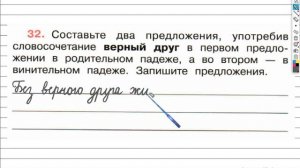 32. Составьте два предложения, употребив
словосочетание верный друг в первом предло-
жении в родительном падеже, а во втором — в
винительном падеже. Запишите предложения.
Без верного друга жи